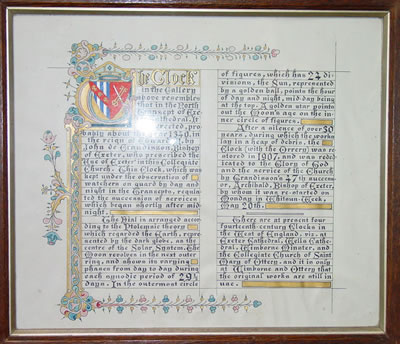 The Clock
in the Gallery
above resembles
that in the North
Transept of Exe-
ter Cathedral.
It was erected, pro-
bably about the year 1340, in
the reign of Edward III, by
John de Grandisson, Bishop
of Exeter, who prescribed the
Use of Exeter in this Collegiate
Church. This Clock, which was
kept under the observation of
watchers on guard by day and
night in the Transepts, regula-
ted the succession of services
which began shortly after mid-
night.
The Dial is arranged accor-
ding to the Ptolemaic theory
which regarded the Earth, repre-
sented by the dark globe, as the
centre of the Solar System. The
Moon revolves in the next outer
ring, and shows its varying
phases from day to day during
each synodic period of 29½
days. In the outermost circle
of figures, which has 24 di-
visions, the Sun, represented
by a golden ball, points the hour
of day and night, mid-day being
at the top. A golden star points
out the Moon's age on the in-
ner circle of figures.
After a silence of over 30
years, during which the works
lay in a heap of debris, the
Clock (with the Orrery) was re-
stored in 1907, and was rededi-
cated to the Glory of God
and the service of the Church
by Grandisson's 47th succes-
sor, Archibald, Bishop of Exeter,
by whom it was re-started on
Monday in Whitsun-Week,
May 20th.
There are at present four
fourteenth-century Clocks in
the West of England, viz. at
Exeter Cathedral, Wells Cathe-
dral, Wimborne Minster, and
the Collegiate Church of Saint
Mary of Ottery, and it is only
at Wimborne and Ottery that
the original works are still in
use.